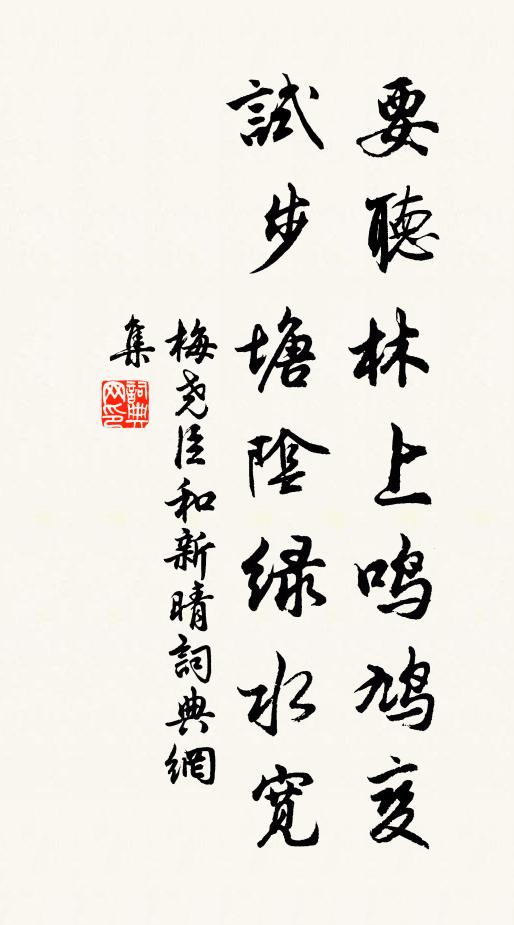 要聽林上鳴鳩变
試步塘陰緑水寬
梅尧臣和新晴詞典網
集
詞典
网印